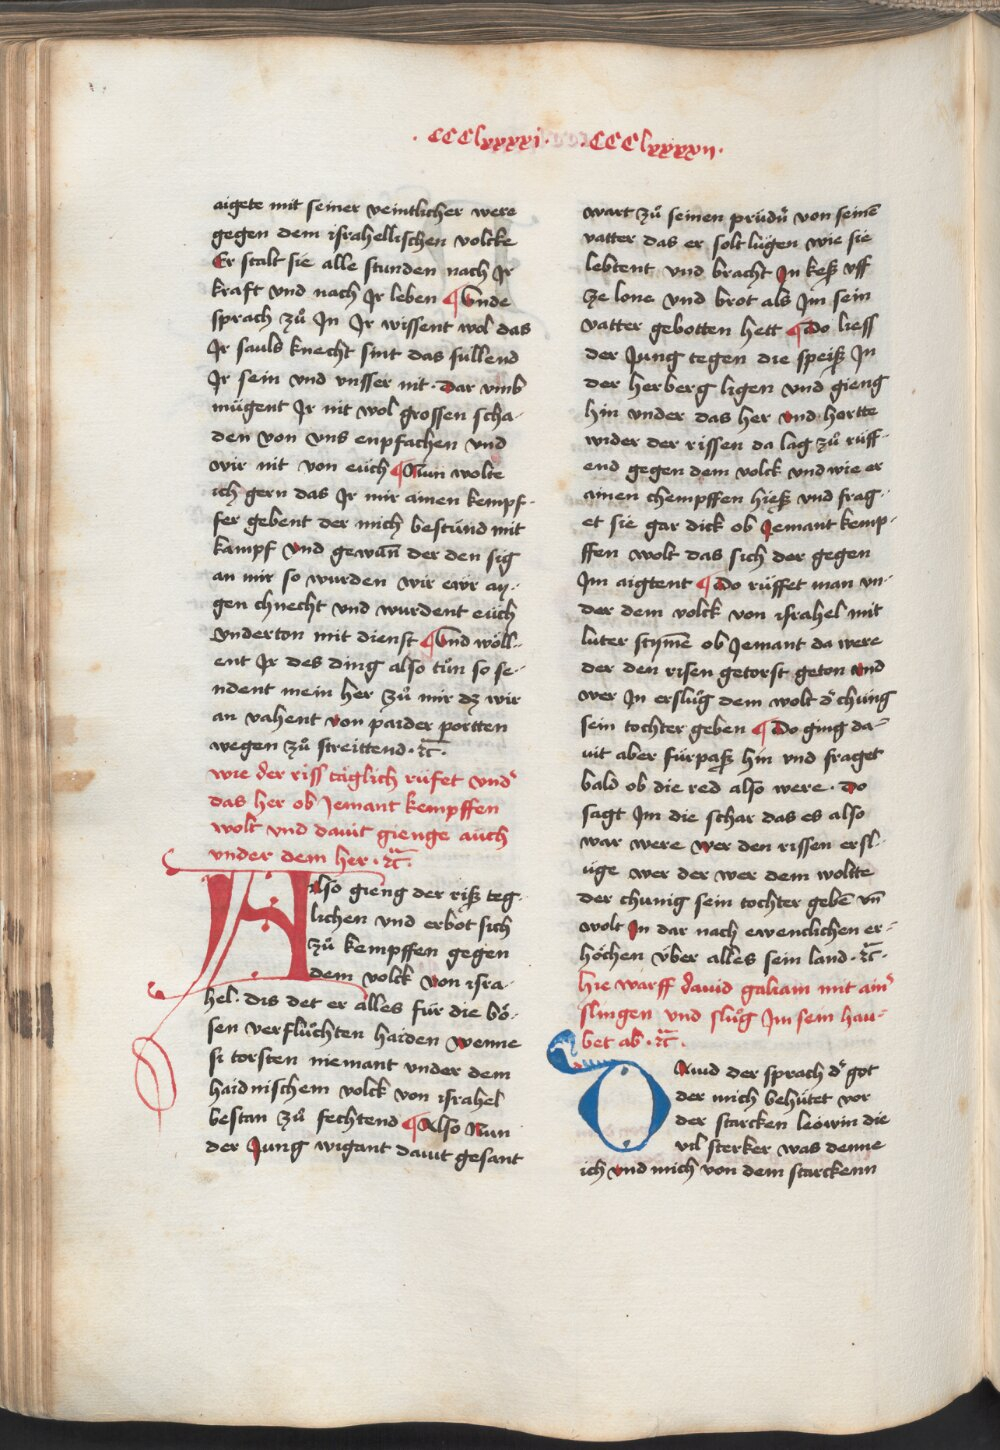 · CCClxxxxi · · CCClxxxxii ·
aigete mit seiner veintlicher were
gegen dem israhellischen volcke
Er stalt sie alle stunden nach Jr
kraft vnd nach Jr leben ¶ Vnde
sprach zů Jn Jr wissent wol das
Jr sauls knecht sint das sullend
Jr sein vnd vnsser nit · Dar vmb
mügent Jr nit wol grossen scha-
den von vns enpfachen vnd
wir nit von eüch ¶ Nun wolte
ich gern das Jr mir ainen kempf-
fer gebent der mich bestünd mit
kampf Vnd gewun̄ der den sig
an mir so wurden wir ewr ay-
gen chnecht vnd wurdent eüch
vnderton mit dienst ¶ Vnd wöll-
ent Jr des ding also tůn so se-
ndent mein her zů mir dz wir
an vahent von paider portten
wegen zů streittend · ꝛc̄ ·
wie der riss täglich rüfet vnder
das her ob Jemant kempffen
wolt vnd dauit gienge auch
vnder dem her · ꝛc̄ ·
Also gieng der riß teg-
lichen vnd erbot sich
zů kempffen gegen
dem volck von isra-
hel · dis det er alles für die bö-
sen verflůchten haiden wenne
si torsten niemant vnder dem
haidnischem volck von israhel
bestan zů fechtend ¶ Also Nun
der Jung wigant dauit gesant
wart zů seinen prüdn̄ von seinē
vatter das er solt lůgen wie sie
lebtent vnd bracht Jn keß vff
ze lone vnd brot als Jm sein
vatter gebotten hett ¶ Do liess
der Jung tegen die speiß Jn
der herberg ligen vnd gieng
hin vnder das her vnd hortte
wider der rissen da lag zů rüff-
end gegen dem volck vnd wie er
ainen chempffen hieß vnd frag-
et sie gar dick ob Jemant kemp-
ffen wolt das sich der gegen
Jm aigtent ¶ Do rüffet man vn-
der dem volck von israhel mit
luter stym̄e ob Jemant da were
der den risen getorst geton vnd
wer Jn erslůg dem wolt dͤ chung
sein tochter geben ¶ Do ging da-
uit aber fürpaß hin vnd fraget
bald ob die red also were · do
sagt Jm die schar das es also
war were wer den rissen ersl-
üge wer der wer dem woltte
der chunig sein tochter gebē vn̄
wolt Jn dar nach ewenclichen er-
höchen über alles sein land · ꝛc̄ ·
hie warff dauid galiam mit ainͤ
slingen vnd slůg Jm sein hau-
bet ab · ꝛc̄ ·
DAuid der sprach dͤ got
der mich behütet vor
der starcken leowin die
vil sterker was denne
ich vnd mich von dem starckenn